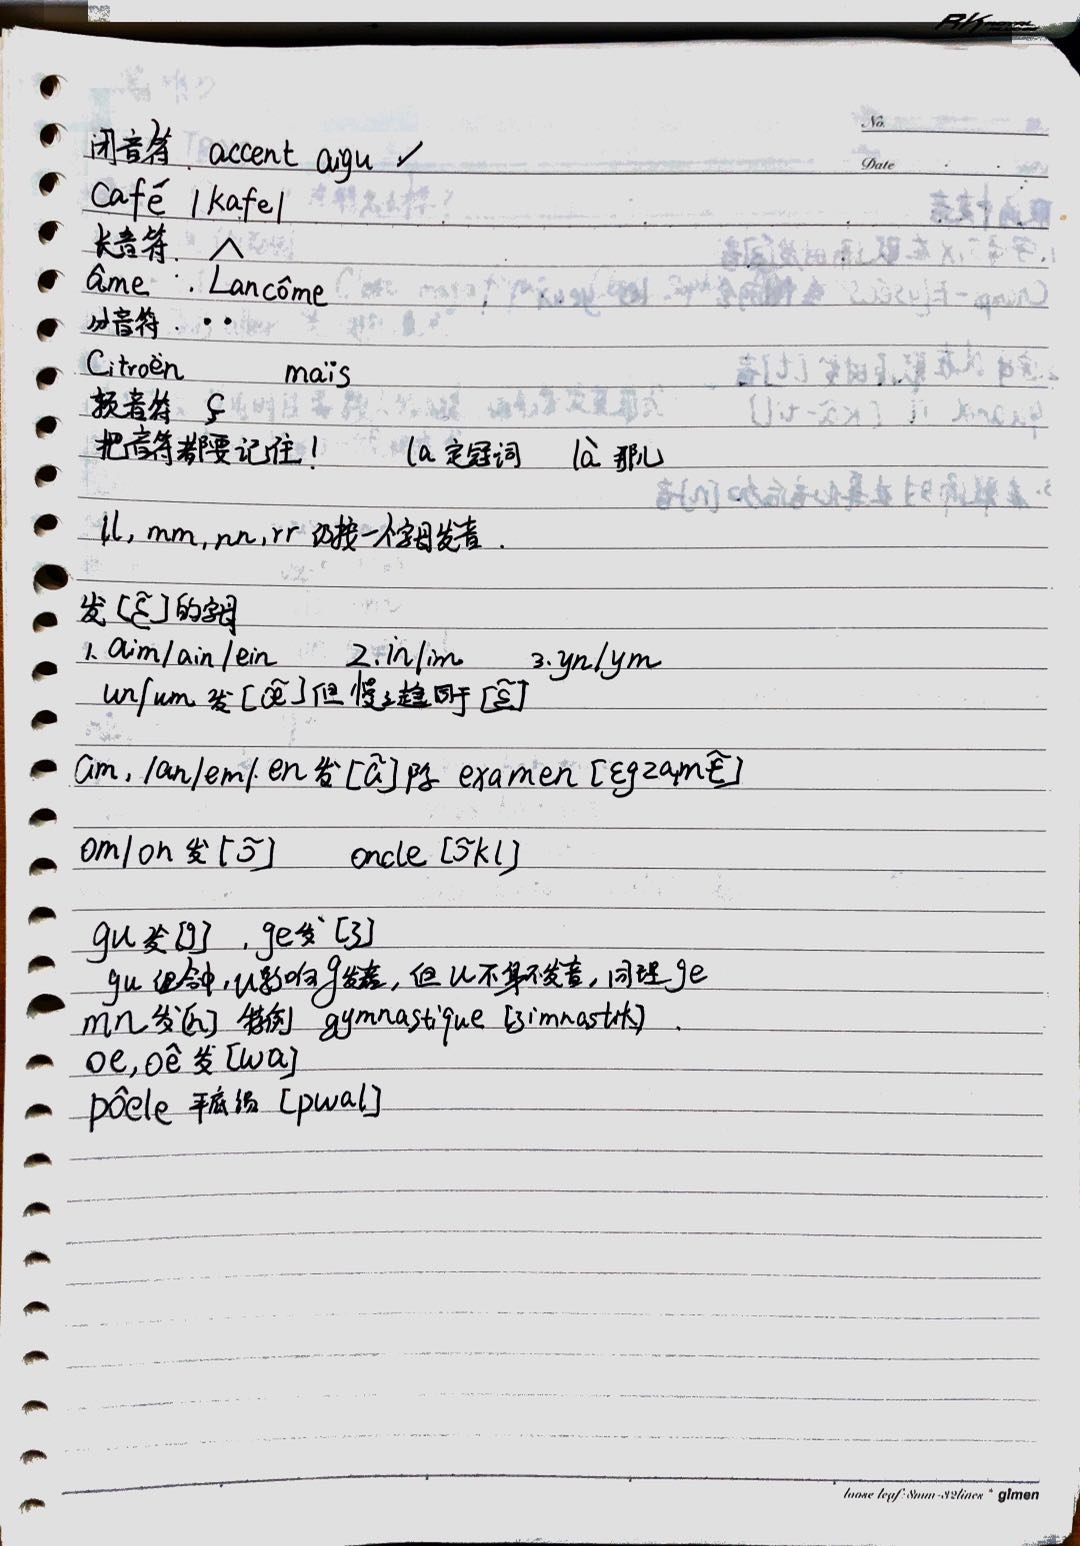 No.
Date
闭音符. accent aigu ✓
Café |kafe|
长音符. ^
âme . Lancôme
分音符. ··
Citroën maïs
软音符 ç
把音符都要记住! la 定冠词 là 那儿
ll, mm, nn, rr 仍按一个字母发音.
发[ɛ̃]的字母
1. aim/ain/ein 2. in/im 3. yn/ym
un/um 发[œ̃]但慢慢趋同于[ɛ̃]
am, /an/em/. en 发[ɑ̃]除 examen [ɛgzamɛ̃]
om/on 发[ɔ̃] oncle [ɔ̃kl]
gu 发[g] , ge发[ʒ]
gu 组合中, u影响g发音, 但u不算不发音, 同理ge
mn发[n] 特例 gymnastique [ʒimnastik] .
oe, oê 发[wa]
pôele 平底锅 [pwal]
loose leaf·8mm·32lines * glmen